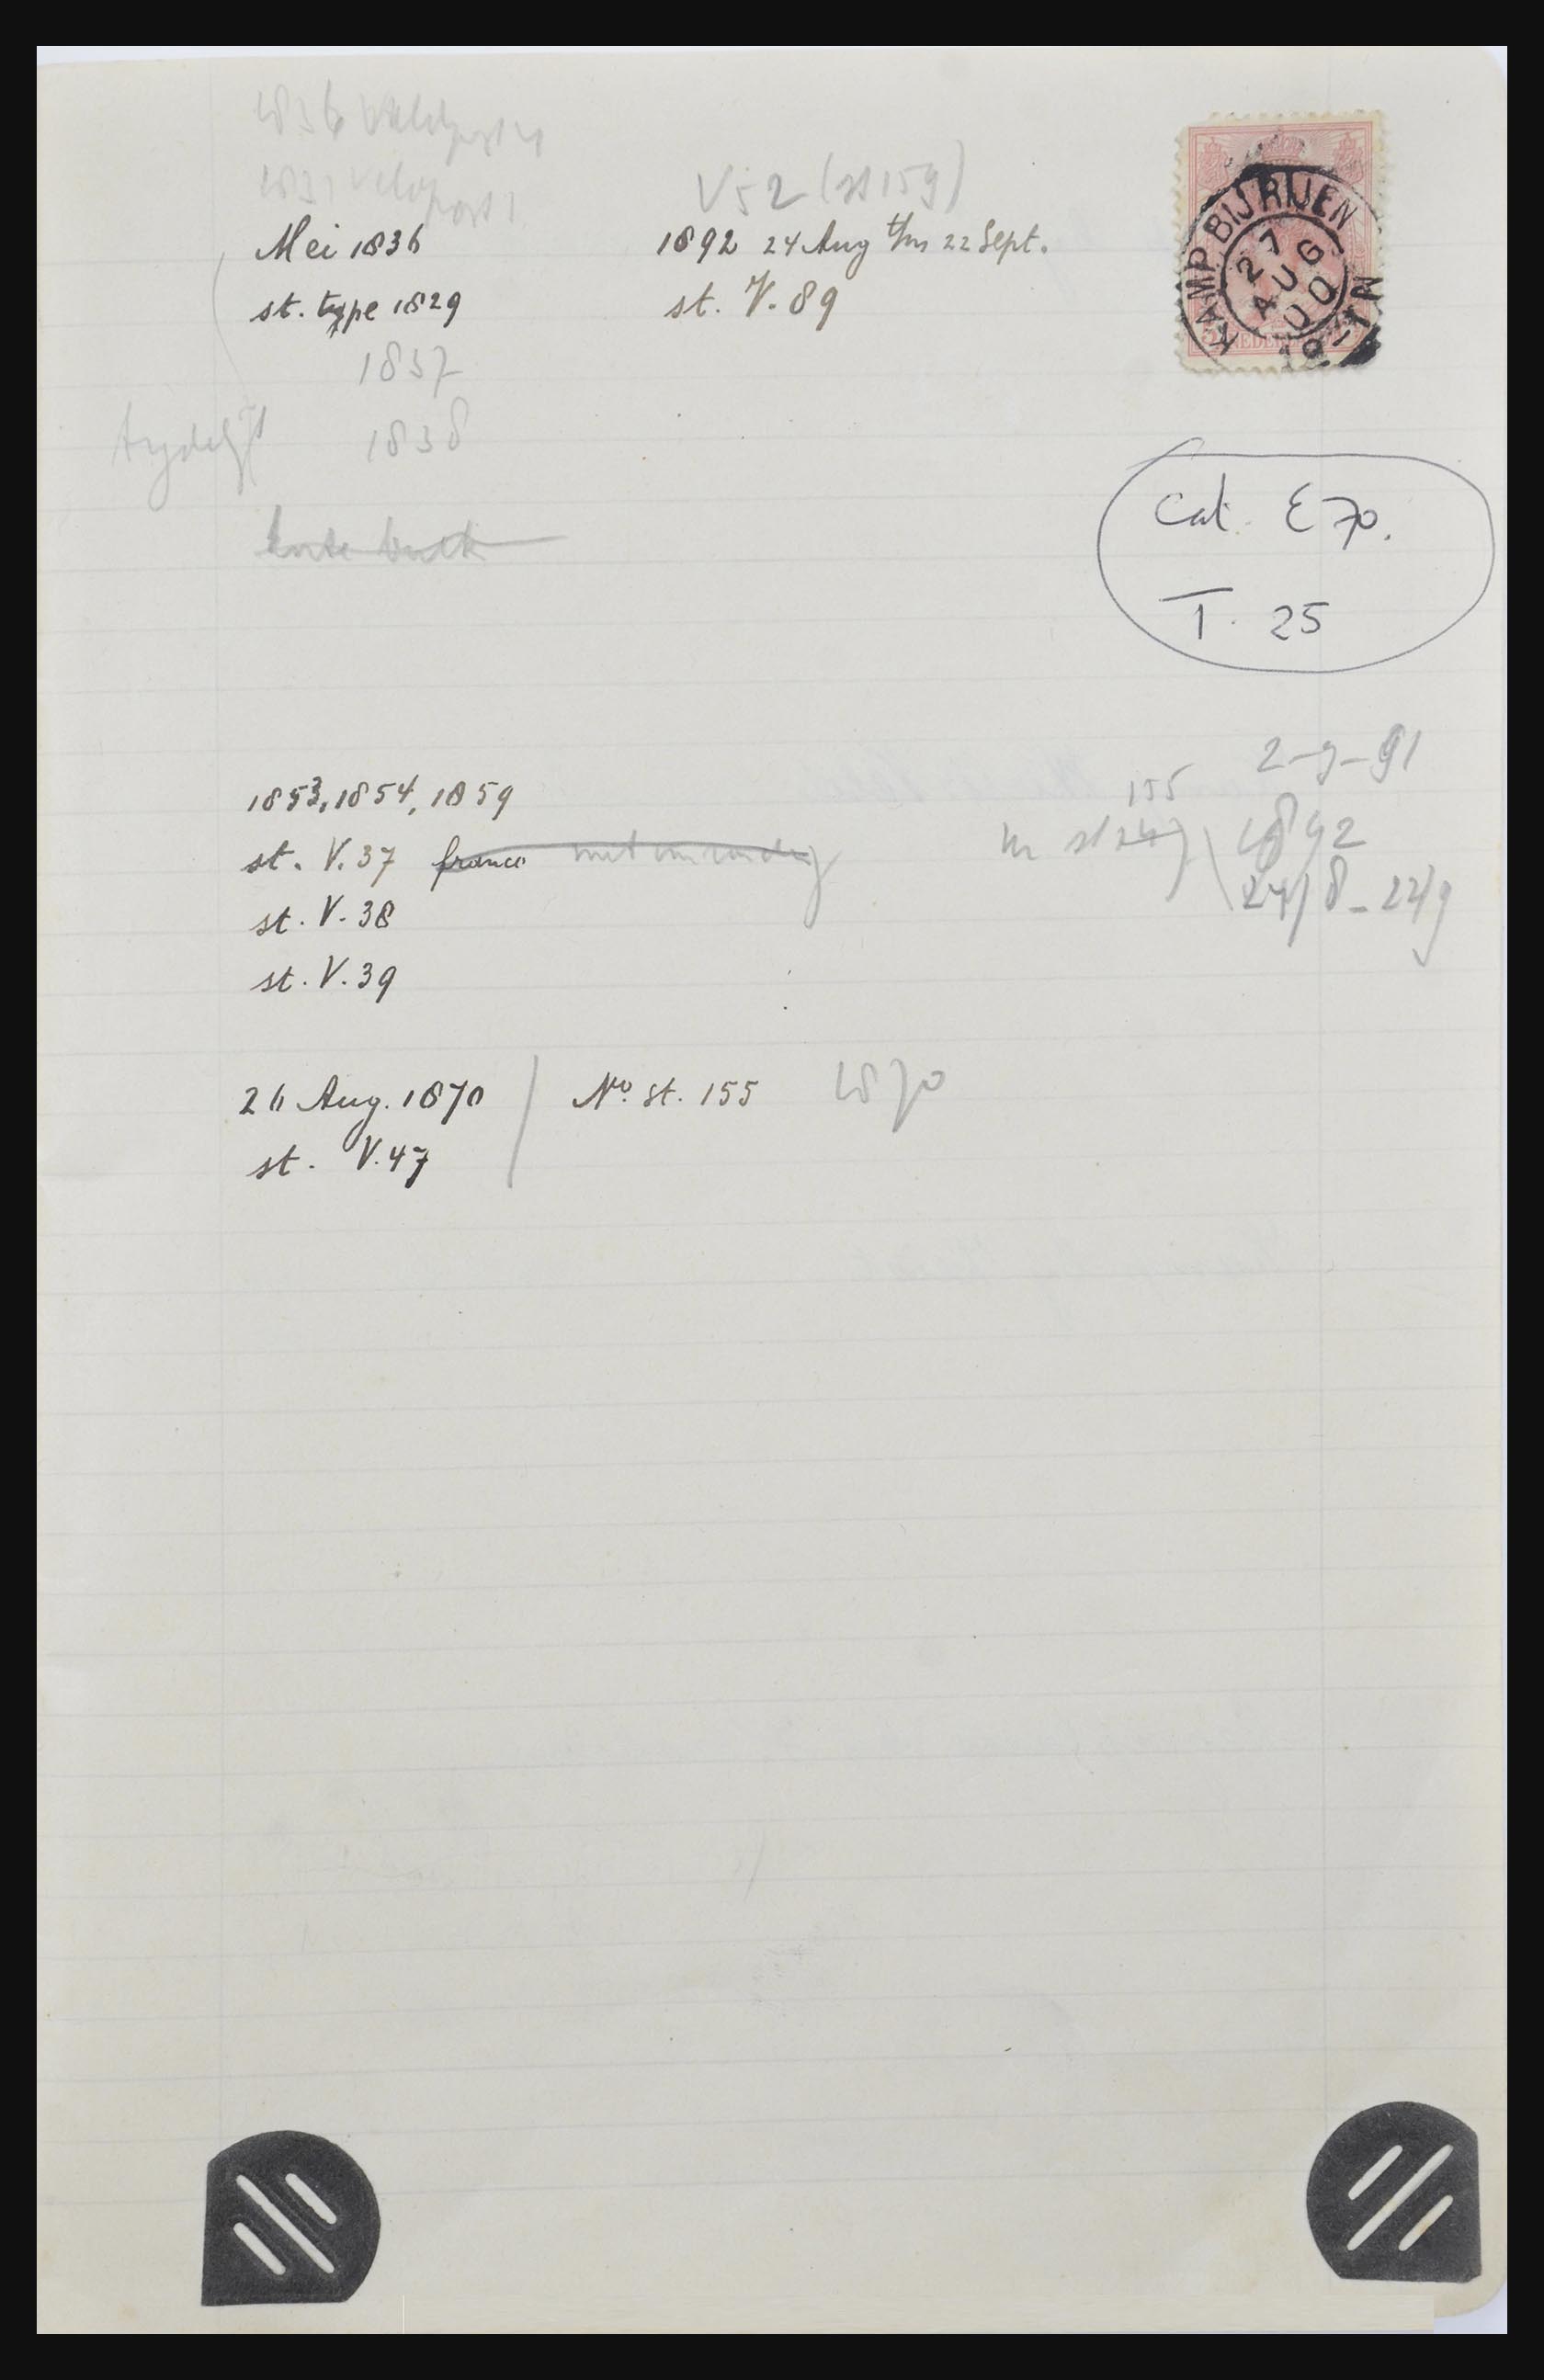 1836 Veldpost
1837 Veldpost 1
Mei 1836
st. type 1829
1837
1838
V52 (st 159)
1892 24 Aug t/m 22 Sept.
st. V. 89
KAMP BIJ RIJEN
27
AUG
00
NEDERL
Cat. € 70.
T. 25
1853, 1854, 1859
st. V. 37 franco
st. V. 38
st. V. 39
2-9-91
155
1892
24/8 - 22/9
26 Aug. 1870
st. V. 47
No. st. 155 1870